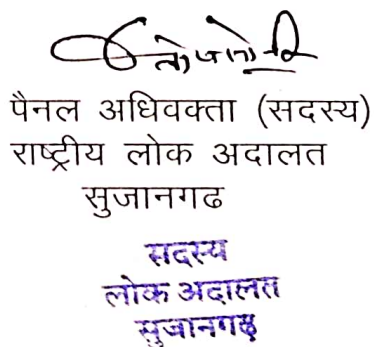 पैनल अधिवक्ता (सदस्य)
राष्ट्रीय लोक अदालत
सुजानगढ
सदस्य
लोक अदालत
सुजानगढ़